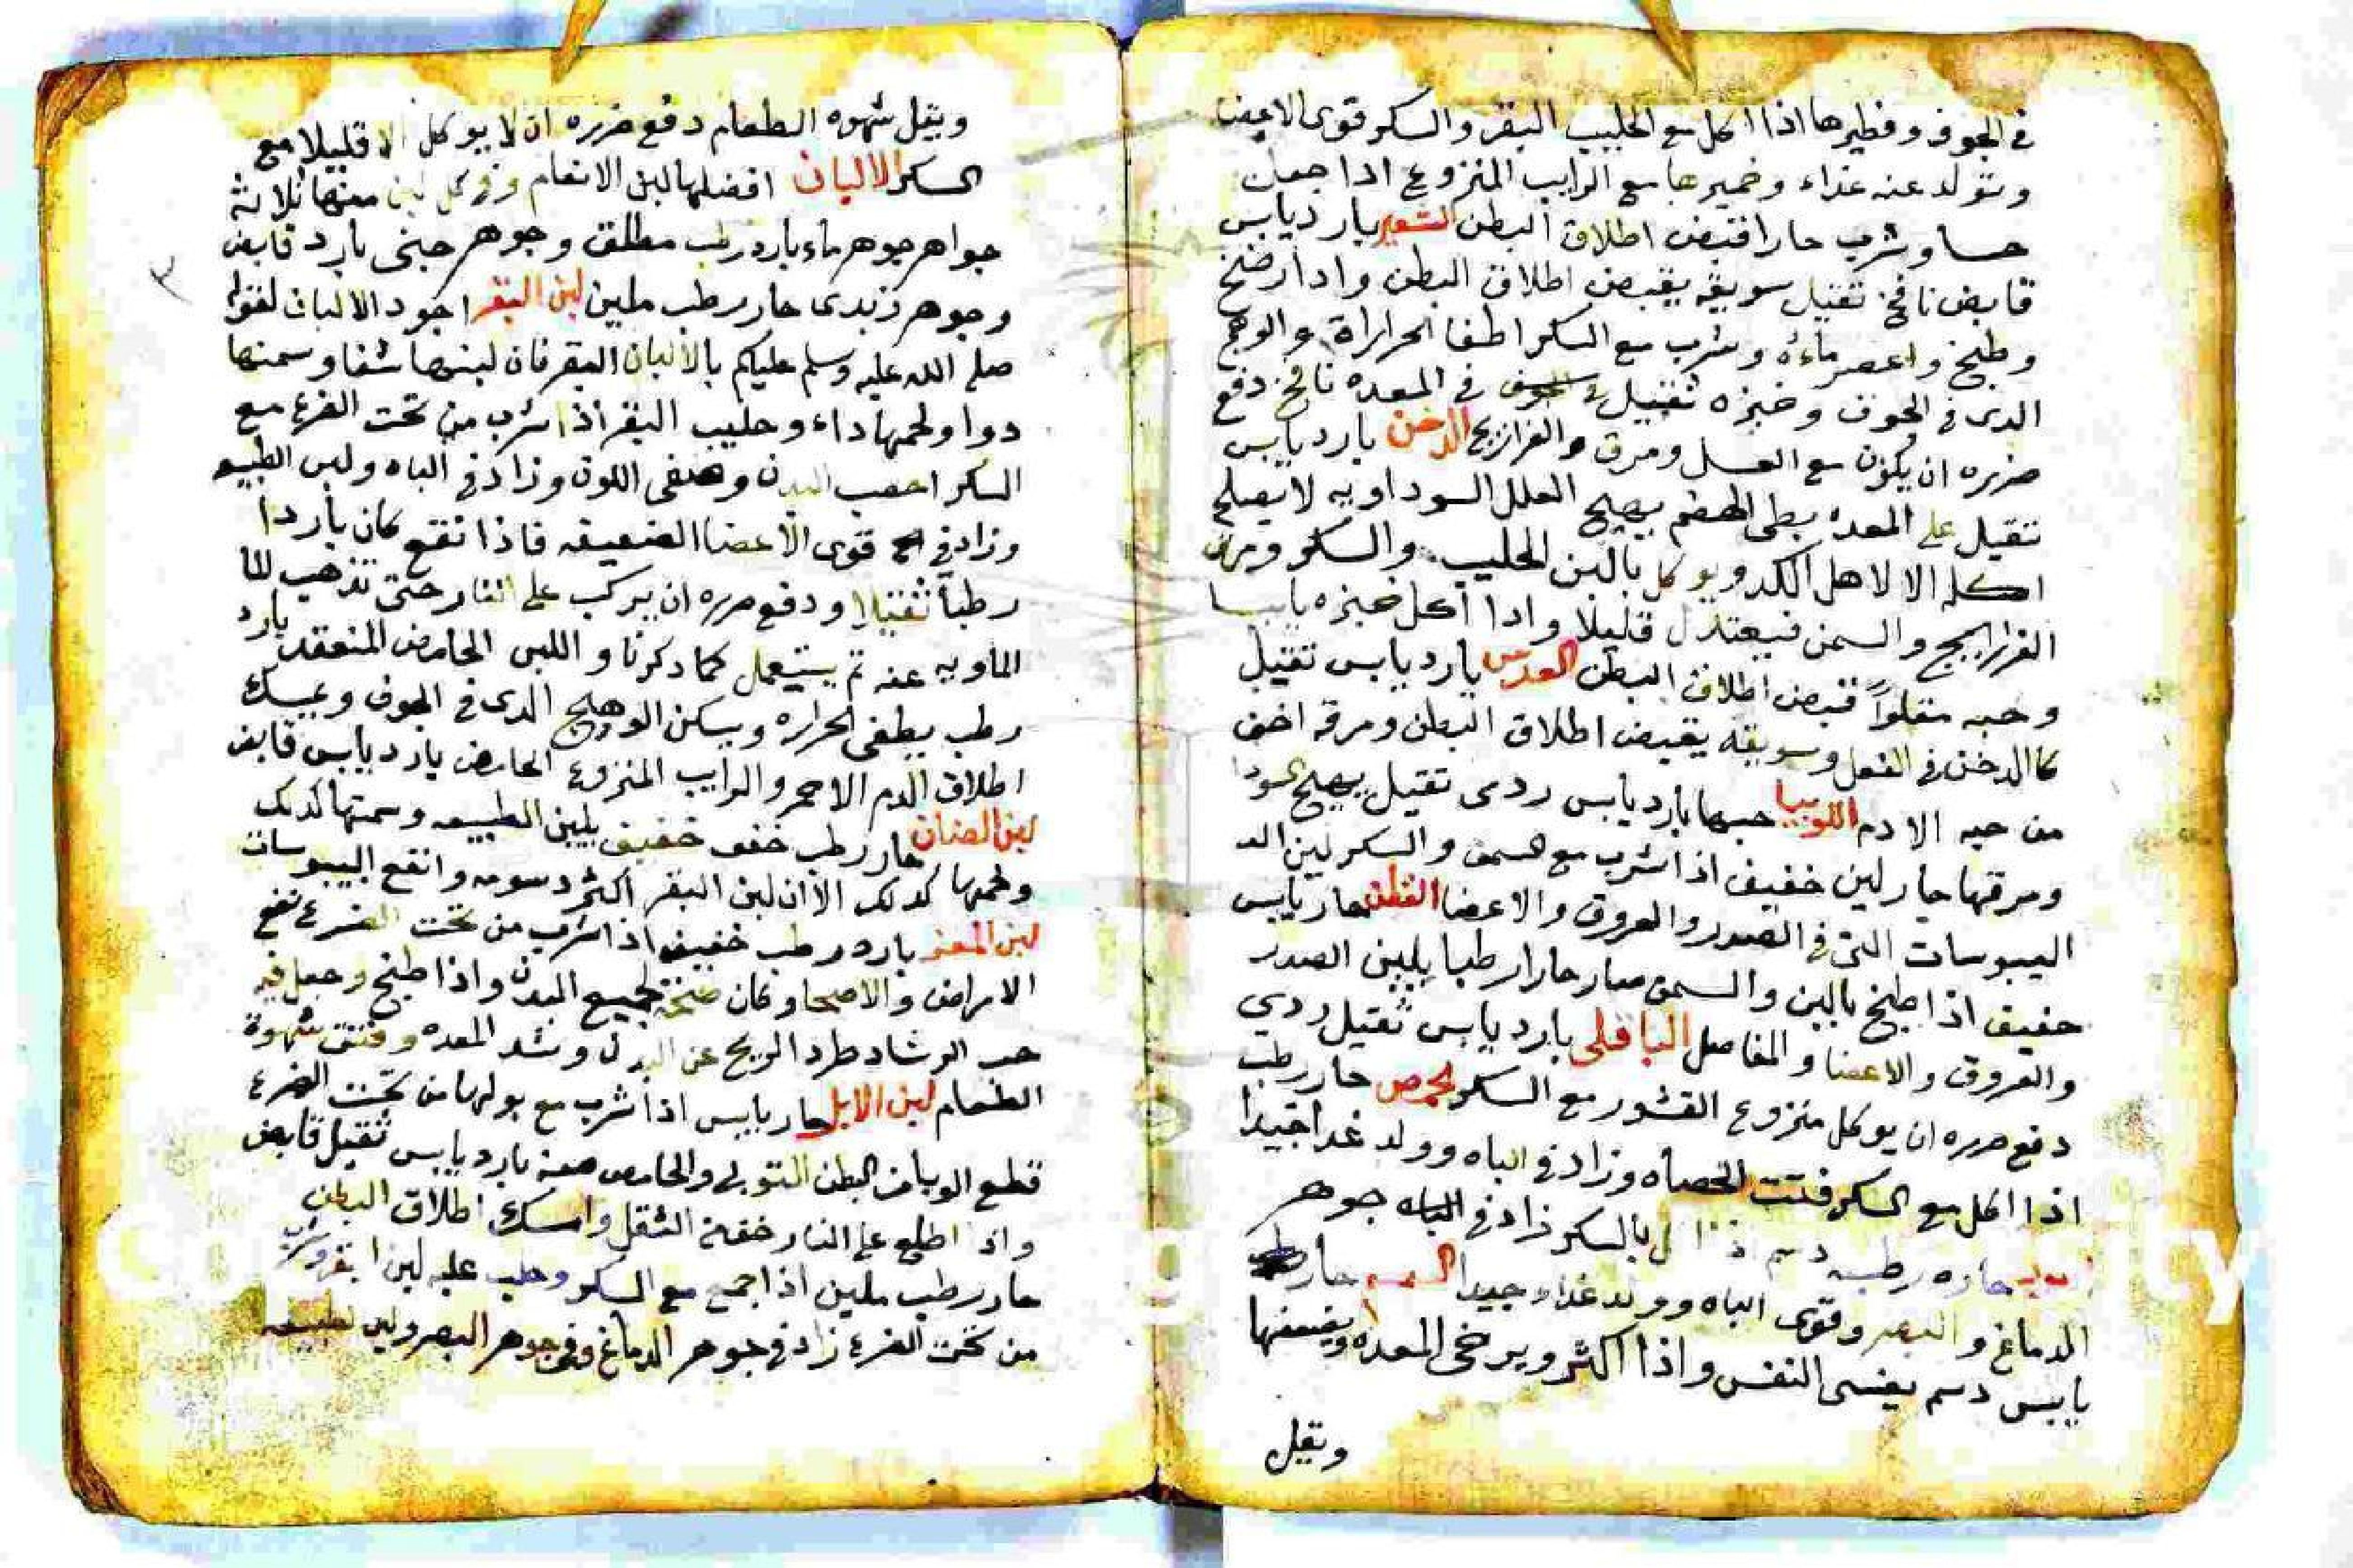 في الجوف وفطيرها اذا اكل مع الحليب البقر والسكر قوى الاعضا
ويتولد عنه غذاء وخميرها مع الرايب المنزوع اذا جعلت
حسا وشرب حارا قبض اطلاق البطن الشعير بارد يابس
قابض نافخ ثقيل سويقه يقبض اطلاق البطن واذا رضخ
وطبخ واعصر ماءه وشرب مع السكر اطفا الحرارة والوهج
الدى في الجوف وخبزه ثقيل في المعده نافخ دفع
ضرره ان يكون مع العسل ومرق والفراريج الدخن بارد يابس
ثقيل على المعده بطى الهضم يهيج العلل السوداويه لا يصلح
اكله الا لاهل الكد ويوكل بالبن الحليب والسكر ومرق
الفراريج والسمن فيعتدل قليلا واذا أكل خبزه يابسا
وحبه مقلوا قبض اطلاق البطن العدس بارد يابس ثقيل
كالدخن في الفعل وسويقه يقبض اطلاق البطن ومرقه اخف
من حبه الادم اللوبيا حبها بارد يابس ردى ثقيل يهيج
ومرقها حار لين خفيف اذا شرب مع سمن والسكر لين
اليبوسات التى في الصدر والعروق والاعضا القطن حار يابس
خفيف اذا طبخ بالبن والسمن صار حارا رطبا يلين الصدر
والعروق والاعضا والمفاصل الباقلى بارد يابس ثقيل ردي
دفع ضرره ان يوكل منزوع القشور مع السكر الحمص حار رطب
اذا اكل مع السكر فتت الحصاه وزاد في الباه وولد غدا جيدا
حاره رطبه دسم بالسكر زاد في الباه جوهر
الدماغ والبصر وقوى الباه وولد غذاء جيدا السمسم حار
يابس دسم يغسى النفس واذا اكثر ويرخى المعده ويضعفها
ويقل
ويقل شهوه الطعام دفع ضرره ان لا يوكل الا قليلا مع
السكر الالبان افضلها لبن الانعام وفي كل لبن منها ثلاثة
جواهر جوهر ماء بارد رطب مطلق وجوهر جبنى بارد قابض
وجوهر زبدى حار رطب ملين لبن البقر اجود الالبان لقوله
صلى الله عليه وسلم عليكم بالألبان البقر فان لبنها شفا وسمنها
دوا ولحمها داء وحليب البقر اذا شرب من تحت الضرع مع
السكر اخصب البدن وصفى اللون وزاد في الباه ولين الطبيعه
وزاد في قوى الاعضا الضعيفه فاذا نقع كان باردا
رطبا ثقيلا ودفع ضرره ان يركب على النار حتى تذهب
الماويه عنه ثم يستعمل كما دكرنا واللبن الحامض المنعقد بارد
رطب يطفى الحراره ويسكن الوهيج الدى في الجوف ويمسك
اطلاق الدم الاحمر والرايب المنزوع الحامض بارد يابس قابض
لبن الضان حار رطب خفيف يلين الطبيعه وسمنها كدلك
ولحمها كدلك الا ان لبن البقر اكثر دسومه وانفع اليبوسات
لبن المعز بارد رطب خفيف اذا شرب من تحت الضرع نفع
الامراض والاصحا وكان صحة لجميع البدن واذا طبخ وجعل فيه
حب الرشاد طرد الريح عن البدن وشد المعده وفتق شهوة
الطعام لبن الابل حار يابس اذا شرب مع بولها من تحت الضرع
قطع الوبا من البطن والحامض منه بارد يابس ثقيل قابض
واذا طلع على النار خفة الثقل وامسك اطلاق البطن
حار رطب ملين اذا جمع مع السكر وحلب عليه لبن البقر وشرب
من تحت الضرع زاد في جوهر الدماغ وفي جوهر البصر ولين الطبيعه